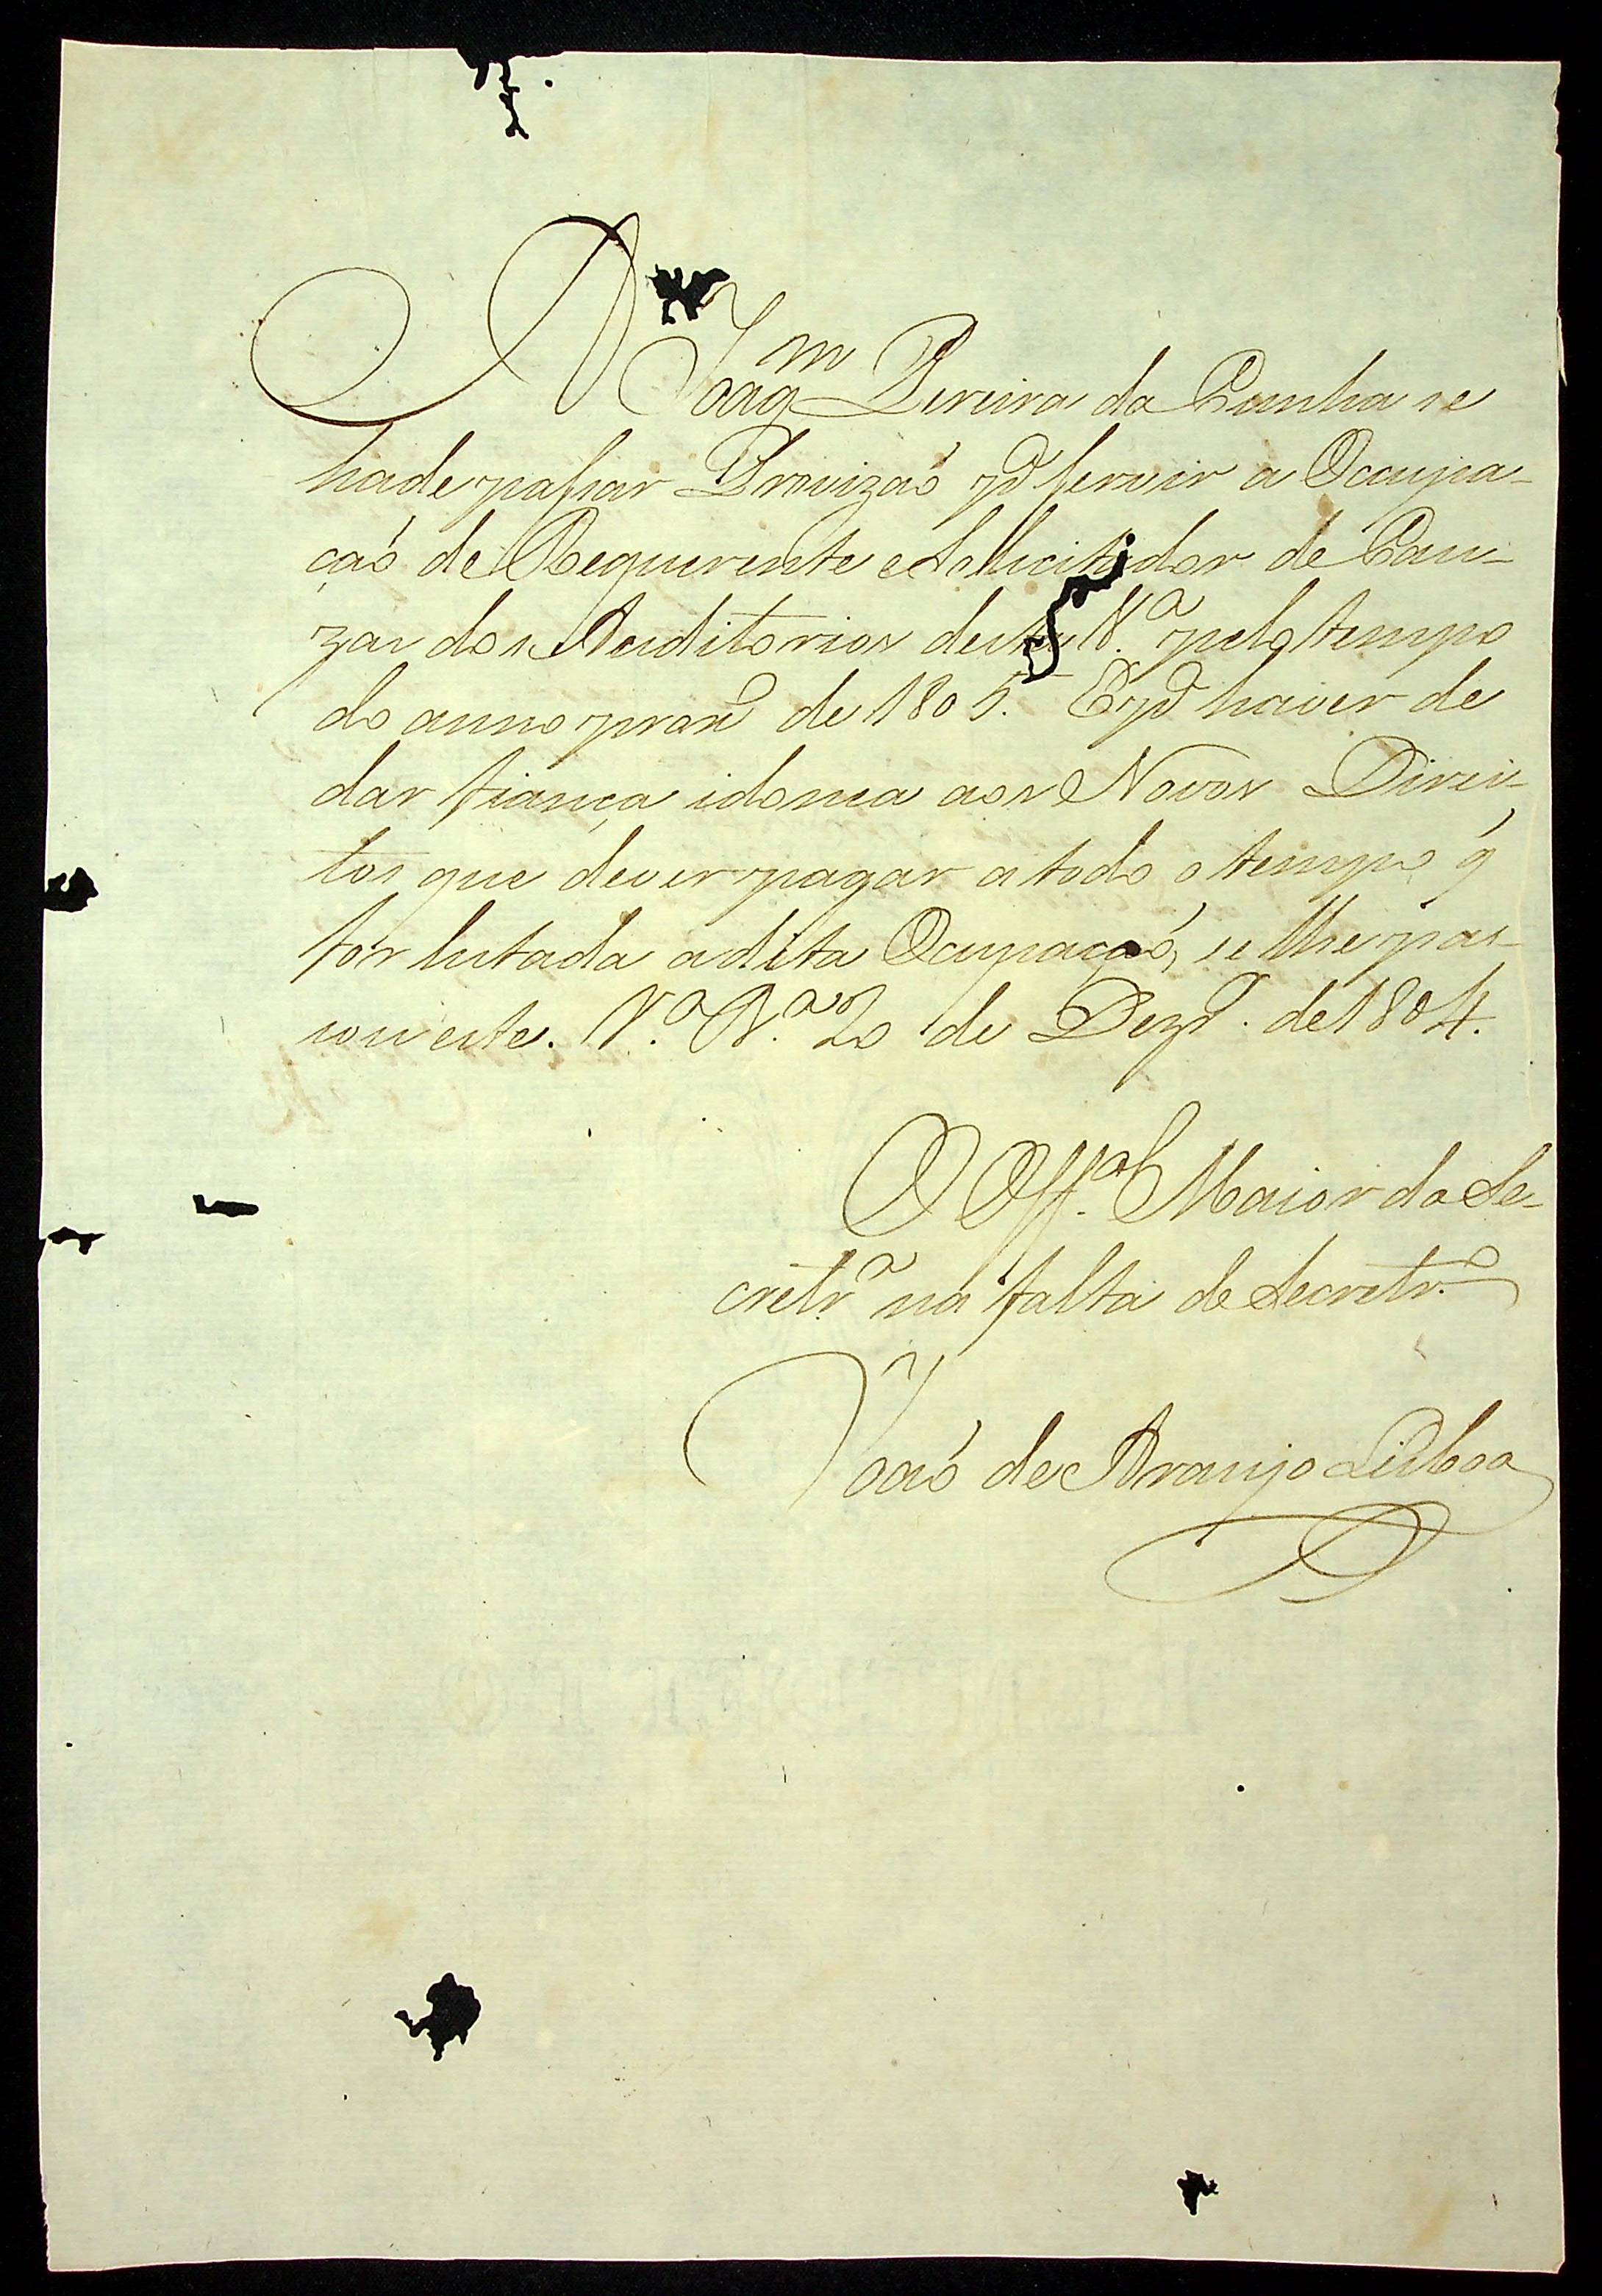 A Joaqm Pereira da Cunha se
hade passar Provizaõ pa servir a Occupa-
çaõ de Requerente e Sollicitador de Cau-
zas dos Auditorios desta V.a pelo tempo
do anno proxo de 1805. E pa haver de
dar fiança idonea aos Novos Direi-
tos que dever pagar a todo o tempo q̃
for lutada a dita Ocupaçaõ, se lhe pas-
sou este. V.a R.a 20 de Dezro. de 1804.
O Off.al Maior da Se-
cretr.a na falta de Secretr.o
Joaõ de Araujo Lisboa